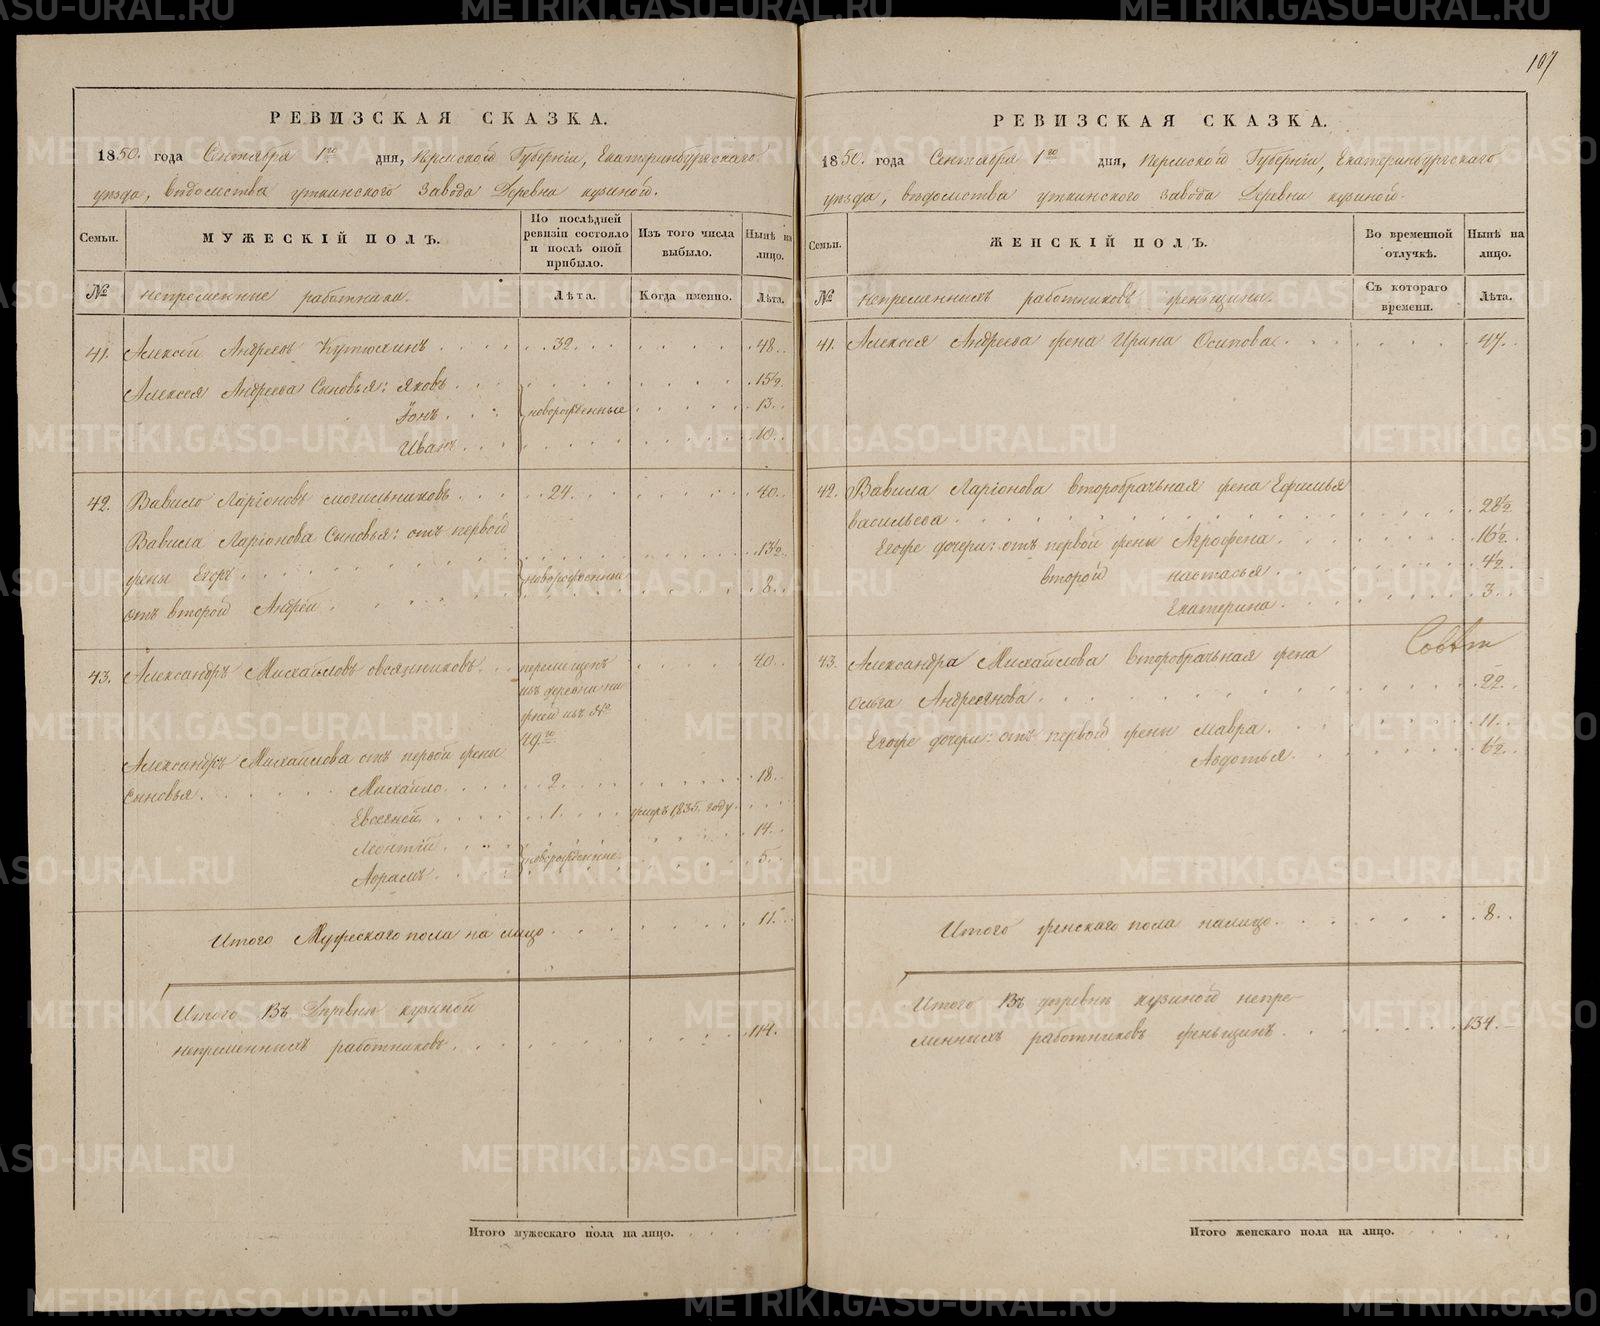 107
РЕВИЗСКАЯ СКАЗКА.
1850. года Сентября 1го дня, Пермской Губерніи, Екатеринбургскаго
уѣзда, вѣдомства уткинского завода Деревни кузиной.
Семьи.
МУЖЕСКІЙ ПОЛЪ.
По послѣдней ревизіи состояло и послѣ оной прибыло.
Изъ того числа выбыло.
Нынѣ на лицо.
№
непременные работники.
Лѣта.
Когда именно.
Лѣта.
41. Алексей Андреевъ Кутюхинъ 32. 48.
Алексея Андреева Сыновья: Яковъ 15½
Іонъ новорожденные 13.
Иванъ 10.
42. Вавило Ларіоновъ смогильниковъ 24. 40.
Вавила Ларіонова Сыновья: отъ первой
жены Егоръ новорожденные 13½
отъ второй Андрей 8.
43. Александръ Михайловъ овсянниковъ перемещенъ 40.
изъ деревни ни
жней изъ №
49го
Александръ Михайлова отъ первой жены
Сыновья Михайло 2. 18.
Евсевей 1. умеръ 1835. году
Леонтій новорожденные 14.
Абрамъ 5.
Итого Мужескаго пола на лицо 11.
Итого Въ Деревнѣ кузиной
непременныхъ работниковъ 114.
Итого мужескаго пола на лицо.
РЕВИЗСКАЯ СКАЗКА.
1850. года Сентября 1го дня, Пермской Губерніи, Екатеринбургскаго
уѣзда, вѣдомства уткинского завода Деревни кузиной.
Семьи.
ЖЕНСКІЙ ПОЛЪ.
Во временной отлучкѣ.
Нынѣ на лицо.
№
непременныхъ работниковъ женьщины.
Съ котораго времени.
Лѣта.
41. Алексея Андреева жена Ирина Осипова 47.
42. Вавила Ларіонова второбрачная жена Ефимья
васильева 28½
Егоже дочери: отъ первой жены Агрофена 16½
второй настасья 4½
Екатерина 3.
43. Александра Михайлова второбрачная жена
Ольга Андреянова 22.
Егоже дочери: отъ первой жены Мавра 11.
Авдотья 6½
Итого женскаго пола налицо 8.
Итого Въ деревнѣ кузиной непре-
менныхъ работниковъ женьщинъ 134.
Итого женскаго пола на лицо.
METRIKI.GASO-URAL.RU